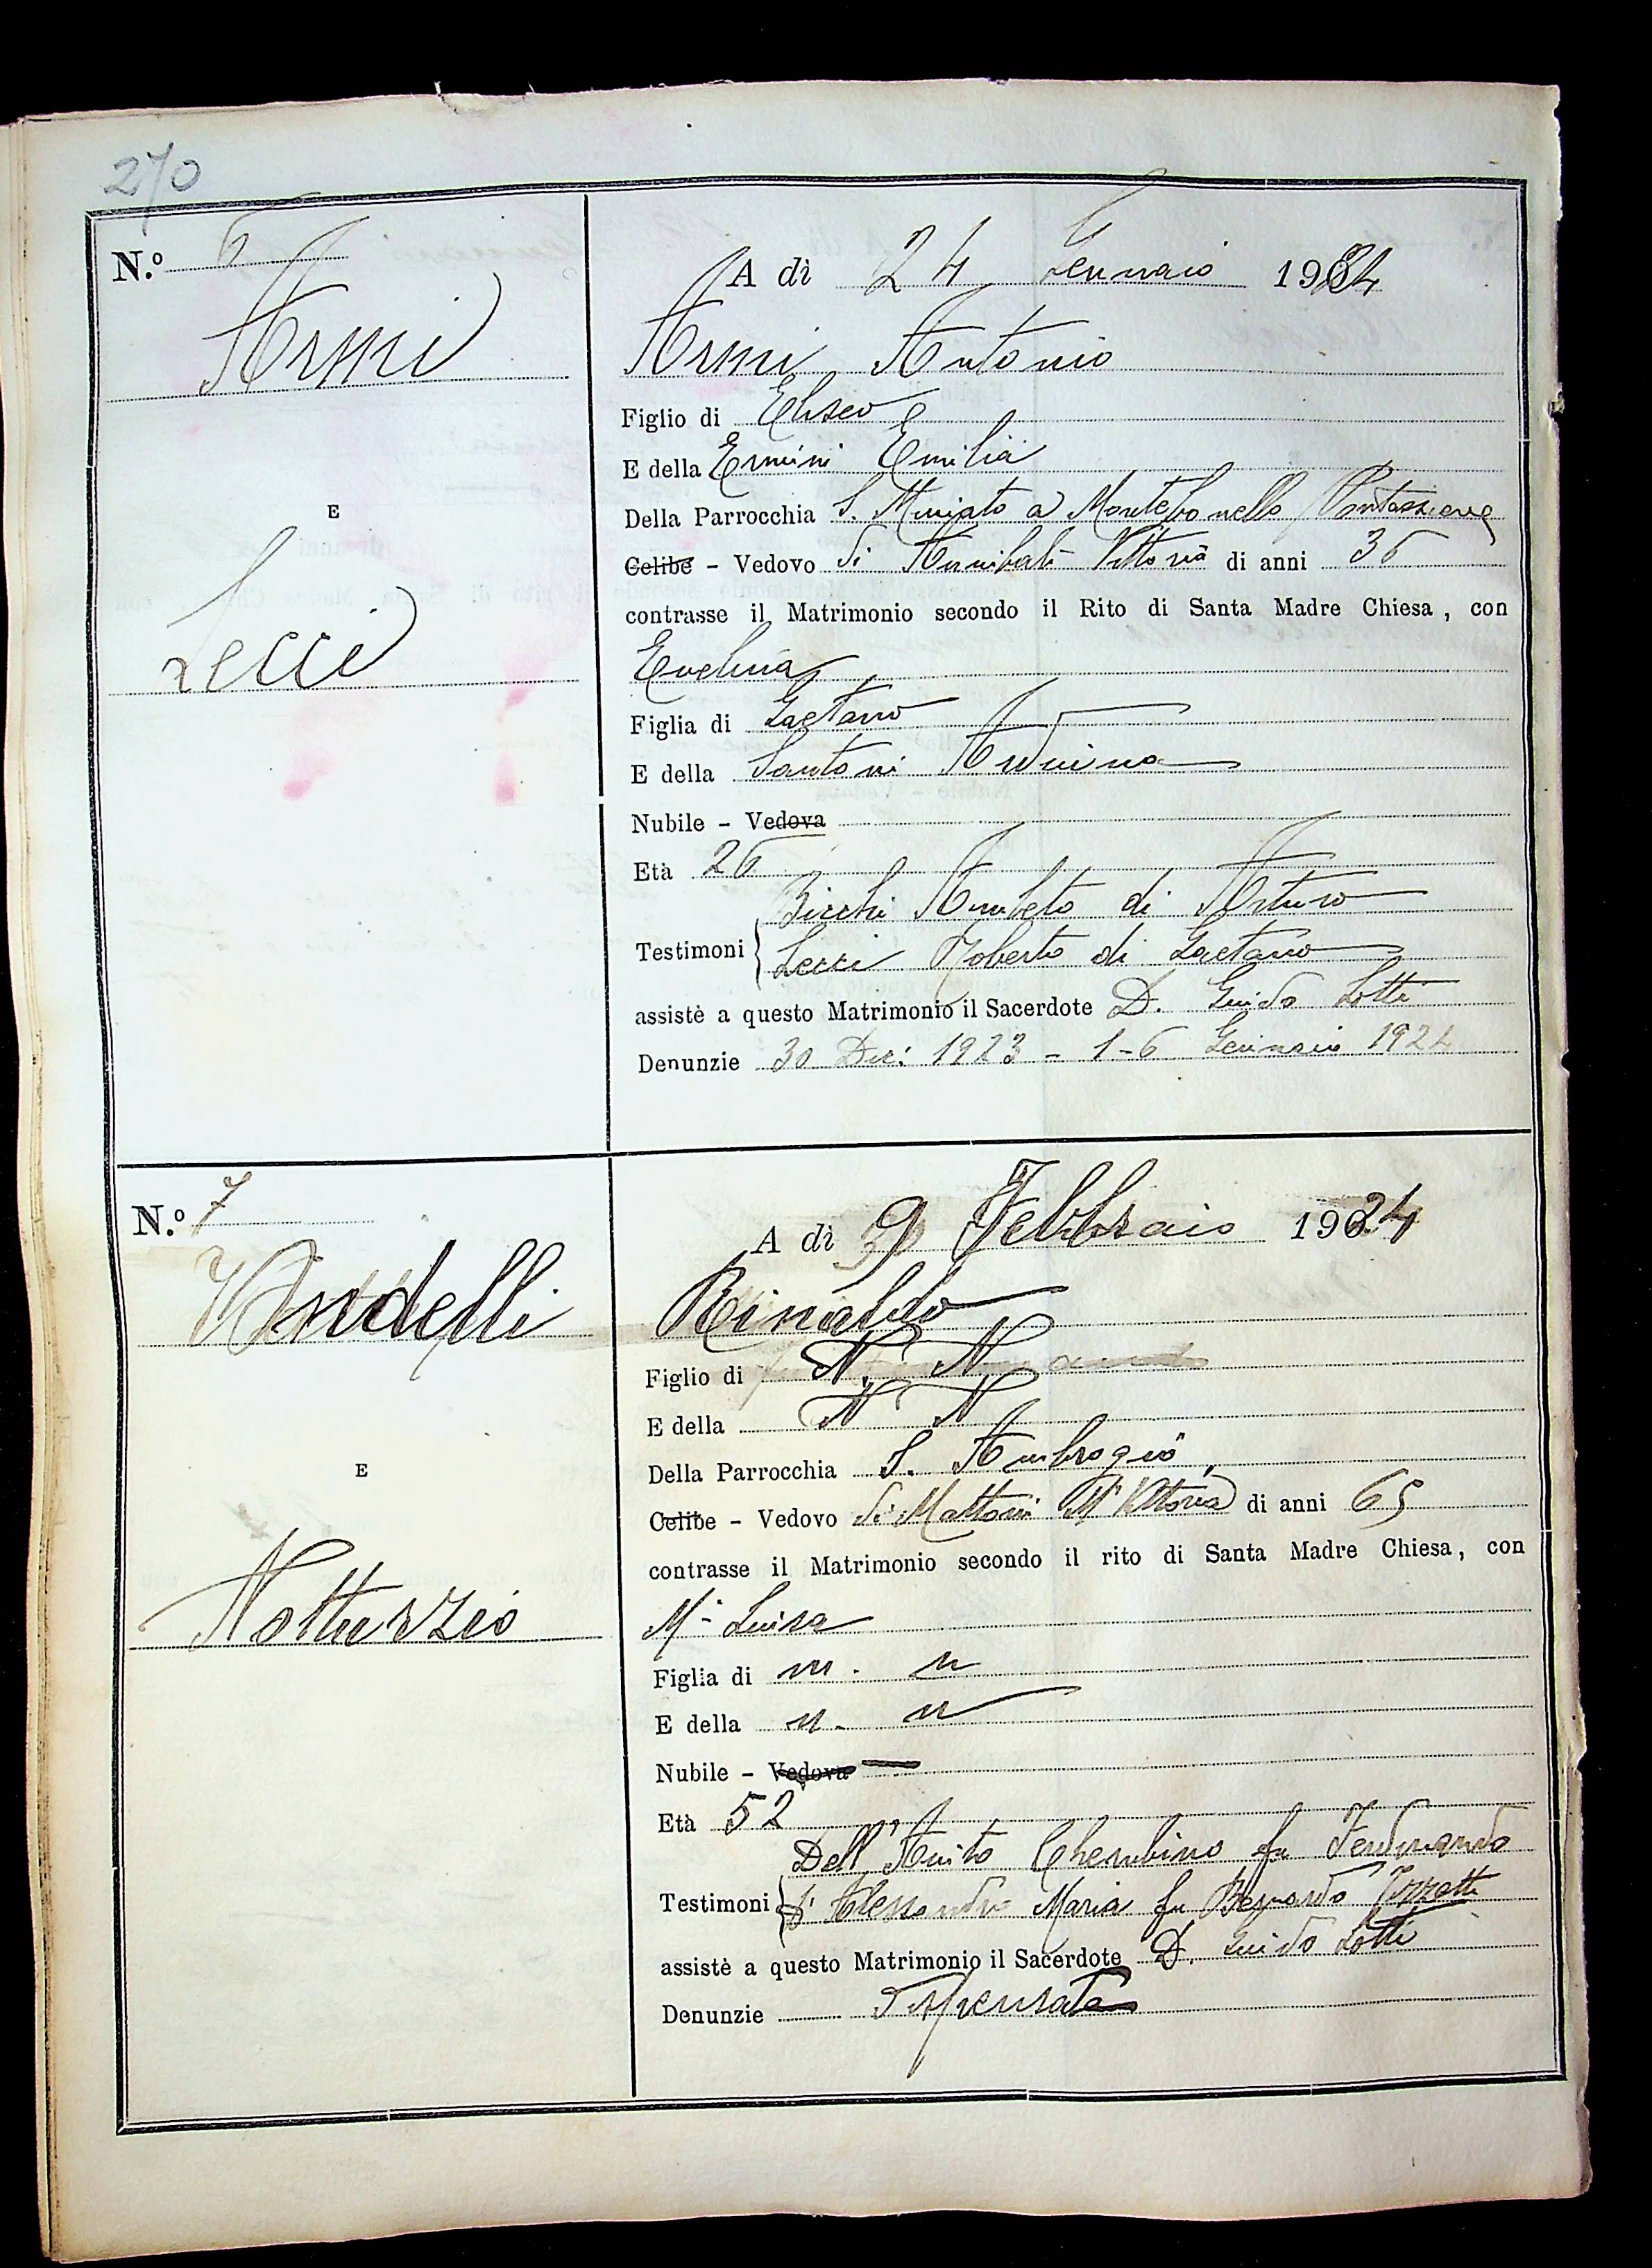 270
N.º 6
Armi
E
Lecci
A dì 24 Gennaio 1924
Armi Antonio
Figlio di Eliseo e
E della Ermini Emilia
Della Parrocchia S. Miniato a Montebonello Pontassieve
Celibe - Vedovo di Annibali Vittoria di anni 36
contrasse il Matrimonio secondo il Rito di Santa Madre Chiesa, con
Evelina
Figlia di Gaetano
E della Santoni
Nubile - Vedova
Età 26
Testimoni Amleto di Arturo
Lecci Roberto di Gaetano
assistè a questo Matrimonio il Sacerdote D. Guido Lotti
Denunzie 30 Dic: 1923 - 1-6 Gennaio 1924
N.º 7
E
A dì 9 Febbraio 1924
Rinaldo
Figlio di N. N
E della N N
Della Parrocchia S. Ambrogio
Celibe - Vedovo di Mattoni Mª Vittoria di anni 65
contrasse il Matrimonio secondo il rito di Santa Madre Chiesa, con
Mª Luisa
Figlia di n. n
E della n. n
Nubile - Vedova
Età 52
Testimoni Dell' Cherubino fu Ferdinando
Maria fu
assistè a questo Matrimonio il Sacerdote D. Guido Lotti
Denunzie